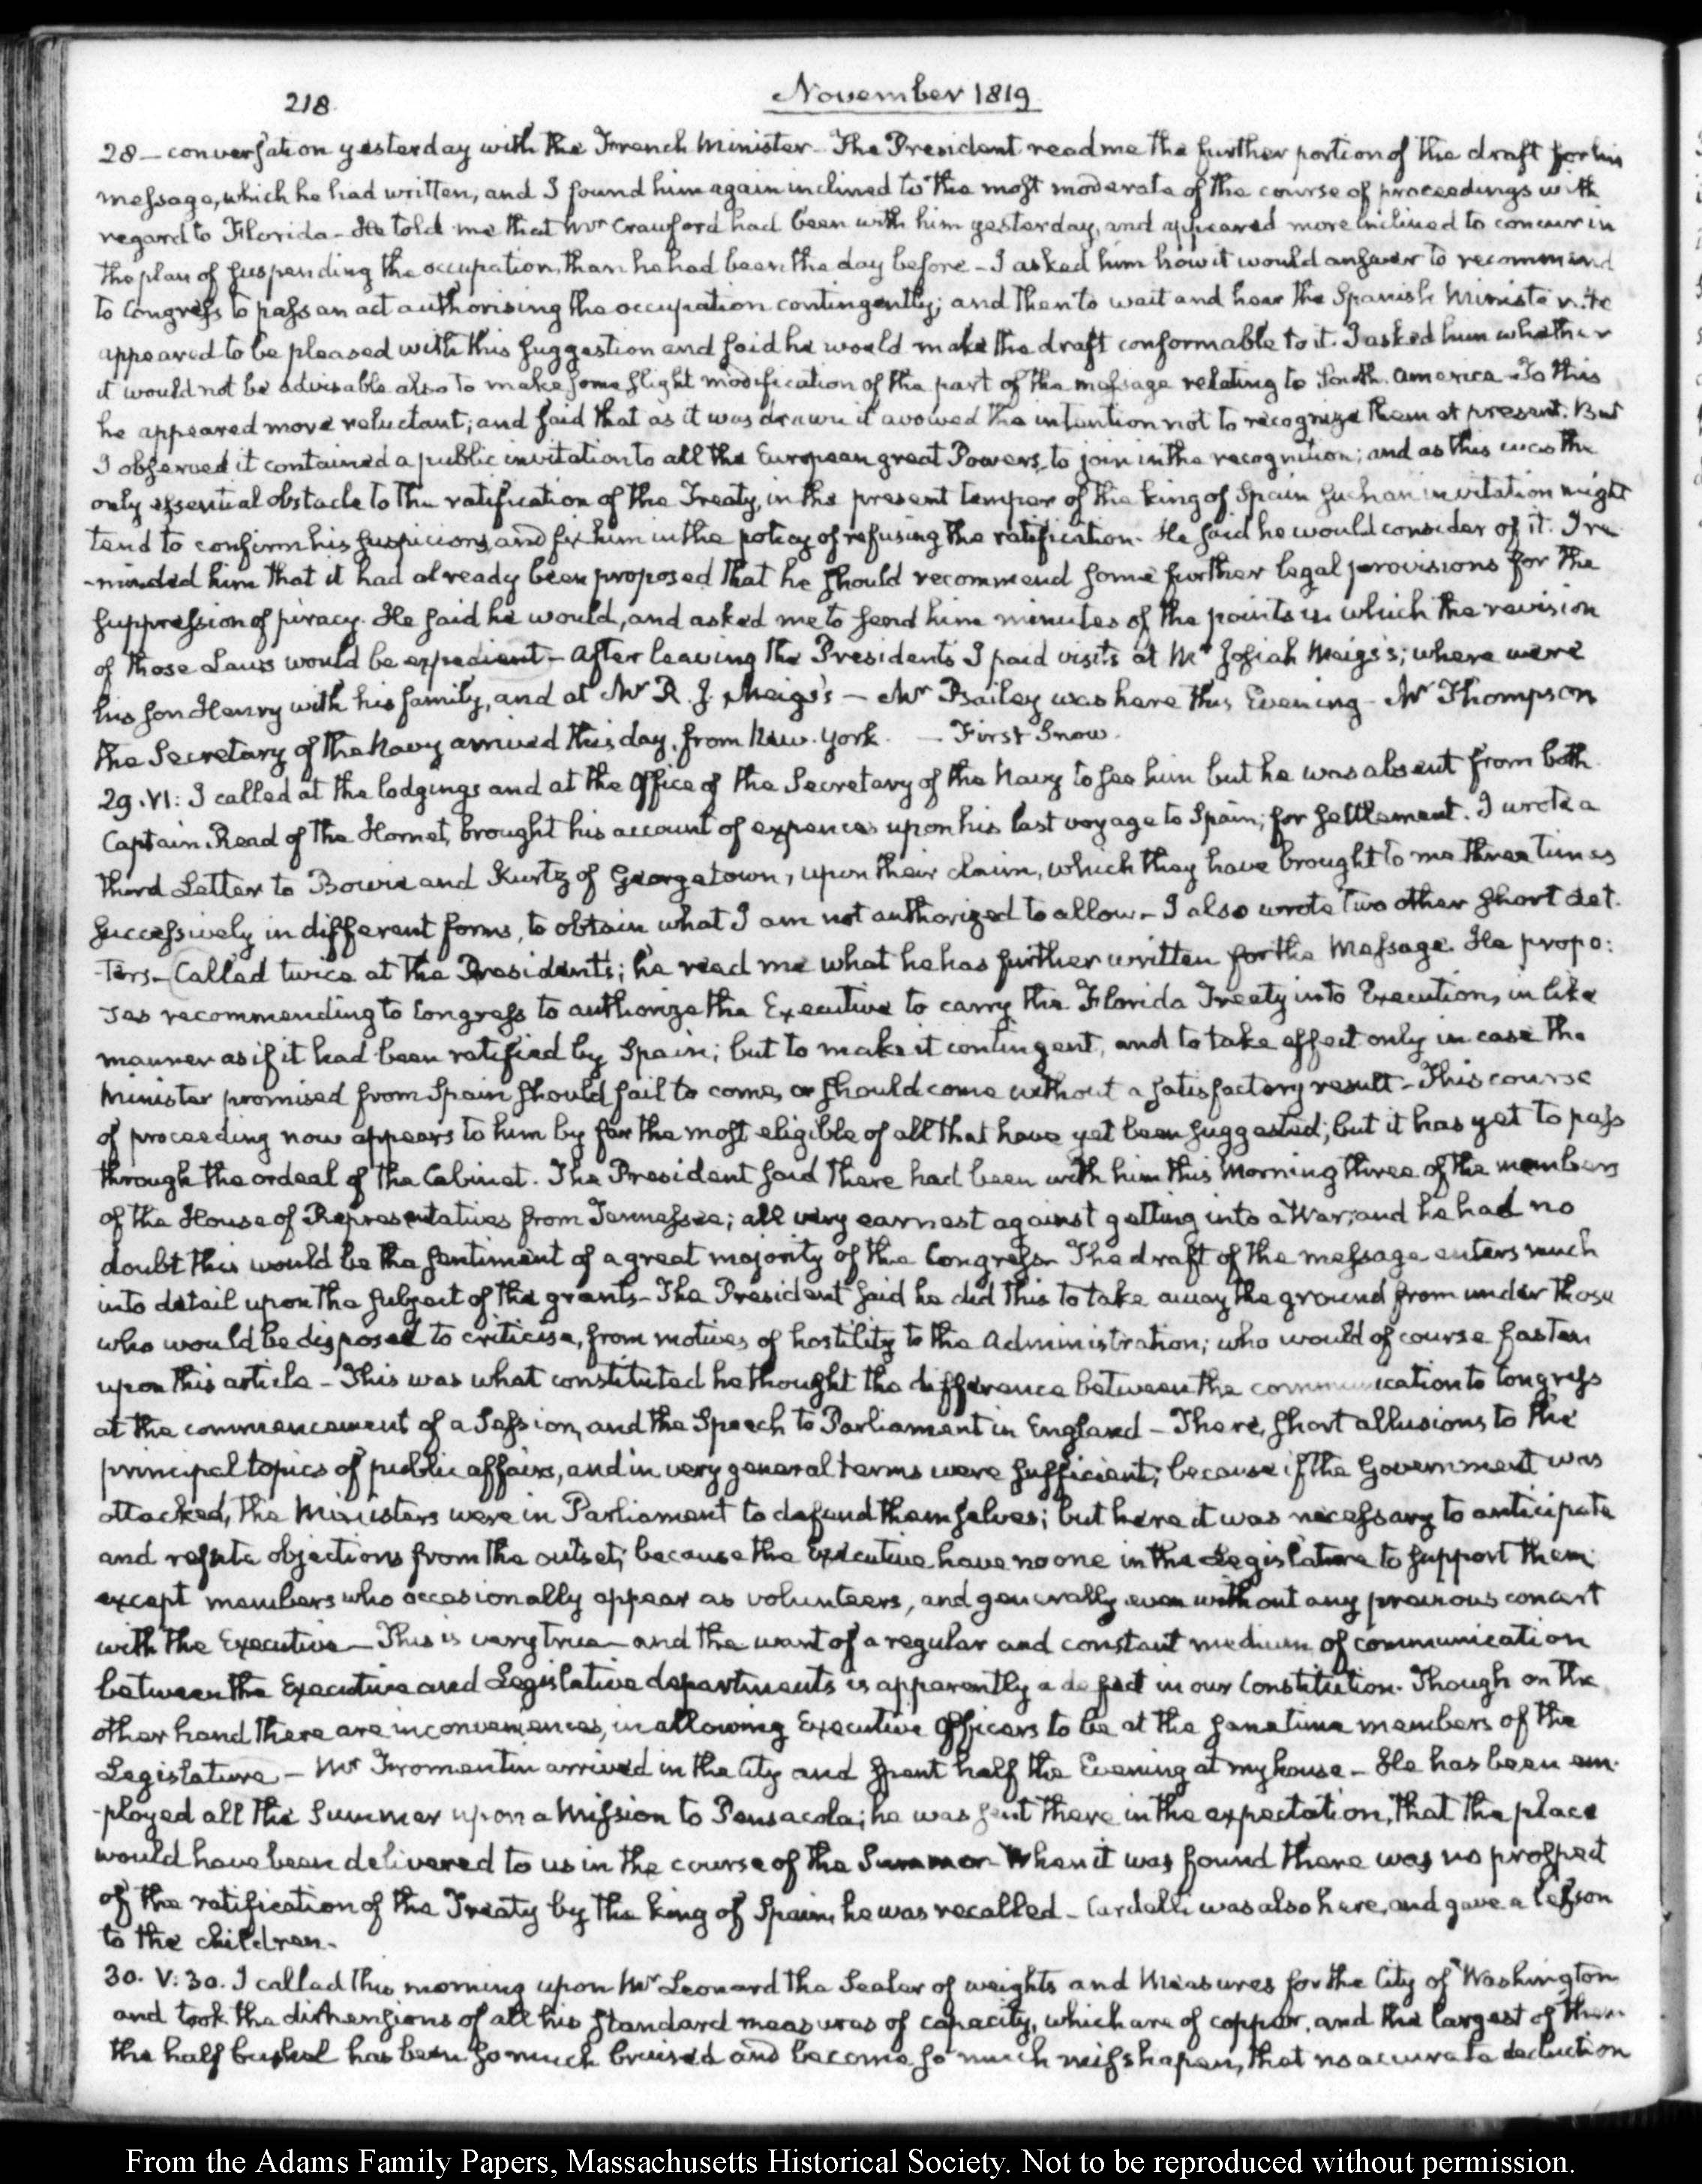 218.
November 1819
28 — conversation yesterday with the French Minister — The President read me the further portion of the draft for his
message, which he had written, and I found him again inclined to the most moderate of the course of proceedings with
regard to Florida — He told me that Mr Crawford had been with him yesterday, and appeared more inclined to concur in
the plan of suspending the occupation, than he had been the day before — I asked him how it would answer to recommend
to Congress to pass an act authorising the occupation contingently; and then to wait and hear the Spanish Minister. He
appeared to be pleased with this suggestion and said he would make the draft conformable to it. I asked him whether
it would not be advisable also to make some slight modification of the part of the message relating to South America — To this
he appeared more reluctant; and said that as it was drawn it avowed the intention not to recognize them at present. But
I observed it contained a public invitation to all the European great Powers, to join in the recognition; and as this was the
only essential obstacle to the ratification of the Treaty, in the present temper of the king of Spain such an invitation might
tend to confirm his suspicions, and fix him in the policy of refusing the ratification. He said he would consider of it. I re
-minded him that it had already been proposed that he should recommend some further legal provisions for the
suppression of piracy. He said he would, and asked me to send him minutes of the points in which the revision
of those Laws would be expedient — After leaving the President's I paid visits at Mr Josiah Meigs's; where were
his son Henry with his family, and at Mr R. J. Meigs's — Mr Bailey was here this Evening — Mr Thompson
the Secretary of the Navy arrived this day, from New-York. — First Snow.
29. VI: I called at the lodgings and at the Office of the Secretary of the Navy to see him but he was absent from both.
Captain Read of the Hornet, brought his account of expences upon his last voyage to Spain, for settlement. I wrote a
third Letter to Bowie and Kurtz of Georgetown, upon their claim, which they have brought to me three times
successively in different forms, to obtain what I am not authorized to allow — I also wrote two other short Let-
-ters — Called twice at the President's; he read me what he has further written for the Message. He propo:
ses recommending to Congress to authorize the Executive to carry the Florida Treaty into Execution, in like
manner as if it had been ratified by Spain; but to make it contingent, and to take effect only in case the
Minister promised from Spain should fail to come, or should come without a satisfactory result — This course
of proceeding now appears to him by far the most eligible of all that have yet been suggested; but it has yet to pass
through the ordeal of the Cabinet. The President said there had been with him this Morning three of the members
of the House of Representatives from Tennessee; all very earnest against getting into a War; and he had no
doubt this would be the sentiment of a great majority of the Congress — The draft of the message enters much
into detail upon the subject of the grants — The President said he did this to take away the ground from under those
who would be disposed to criticise, from motives of hostility to the Administration; who would of course fasten
upon this article — This was what constituted he thought the difference between the communication to Congress
at the commencement of a Session, and the Speech to Parliament in England — There, short allusions to the
principal topics of public affairs, and in very general terms were sufficient; because if the Government was
attacked, the Ministers were in Parliament to defend themselves; but here it was necessary to anticipate
and refute objections from the outset; because the Executive have no one in the Legislature to support them
except members who occasionally appear as volunteers, and generally even without any previous concert
with the Executive — This is very true — and the want of a regular and constant medium of communication
between the Executive and Legislative departments is apparently a defect in our Constitution. Though on the
other hand there are inconveniences, in allowing Executive Officers to be at the same time members of the
Legislature — Mr Fromentin arrived in the City and spent half the Evening at my house — He has been em-
-ployed all the Summer upon a Mission to Pensacola; he was sent there in the expectation, that the place
would have been delivered to us in the course of the Summer — When it was found there was no prospect
of the ratification of the Treaty by the king of Spain, he was recalled — Cardelli was also here, and gave a lesson
to the children.
30. V:30. I called this morning upon Mr Leonard the Sealer of weights and Measures for the City of Washington
and took the dimensions of all his standard measures of capacity, which are of copper, and the largest of them
the half bushel has been so much bruised and become so much misshapen, that no accurate deduction
From the Adams Family Papers, Massachusetts Historical Society. Not to be reproduced without permission.